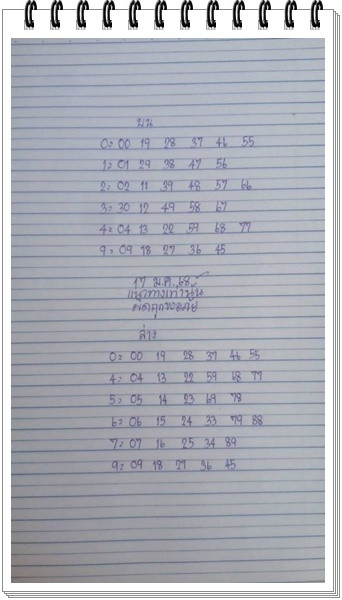 บน
0= 00 19 28 37 46 55
1= 01 29 38 47 56
2= 02 11 39 48 57 66
3= 30 12 49 58 67
4= 04 13 22 59 68 77
9= 09 18 27 36 45
17 ม.ค. 68
แนวทางเท่านั้น
ผิดถูกขออภัย
ล่าง
0= 00 19 28 37 46 55
4= 04 13 22 59 68 77
5= 05 14 23 69 78
6= 06 15 24 33 79 88
7= 07 16 25 34 89
9= 09 18 27 36 45